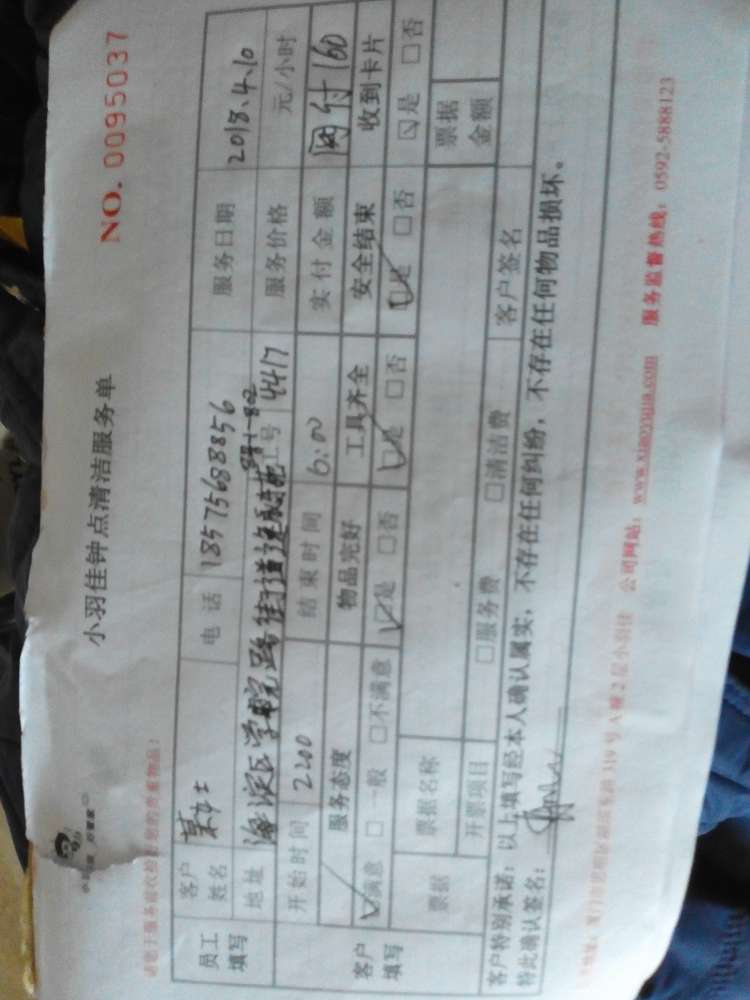 小羽佳钟点清洁服务单
NO. 0095037
员工填写
客户姓名 某女士 电话 18575688856 服务日期 2018.4.10
地址 海淀区学院路街道逸成苑 8号1-802 服务价格 元/小时
工号 4417
开始时间 2:00 结束时间 6:00 实付金额 网付160
客户填写
服务态度 物品完好 工具齐全 安全结束 收到卡片
满意 一般 不满意 是 否 是 否 是 否 是 否
票据 票据名称 票据金额
开票项目 服务费 清洁费 客户签名
客户特别承诺：以上填写经本人确认属实，不存在任何纠纷，不存在任何物品损坏。
特此确认签名：
公司网站：www.xiaoyujia.com 服务监督热线：0592-5888123